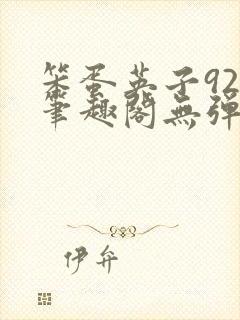 笨蛋英子92
笔趣閣無弹
伊弁